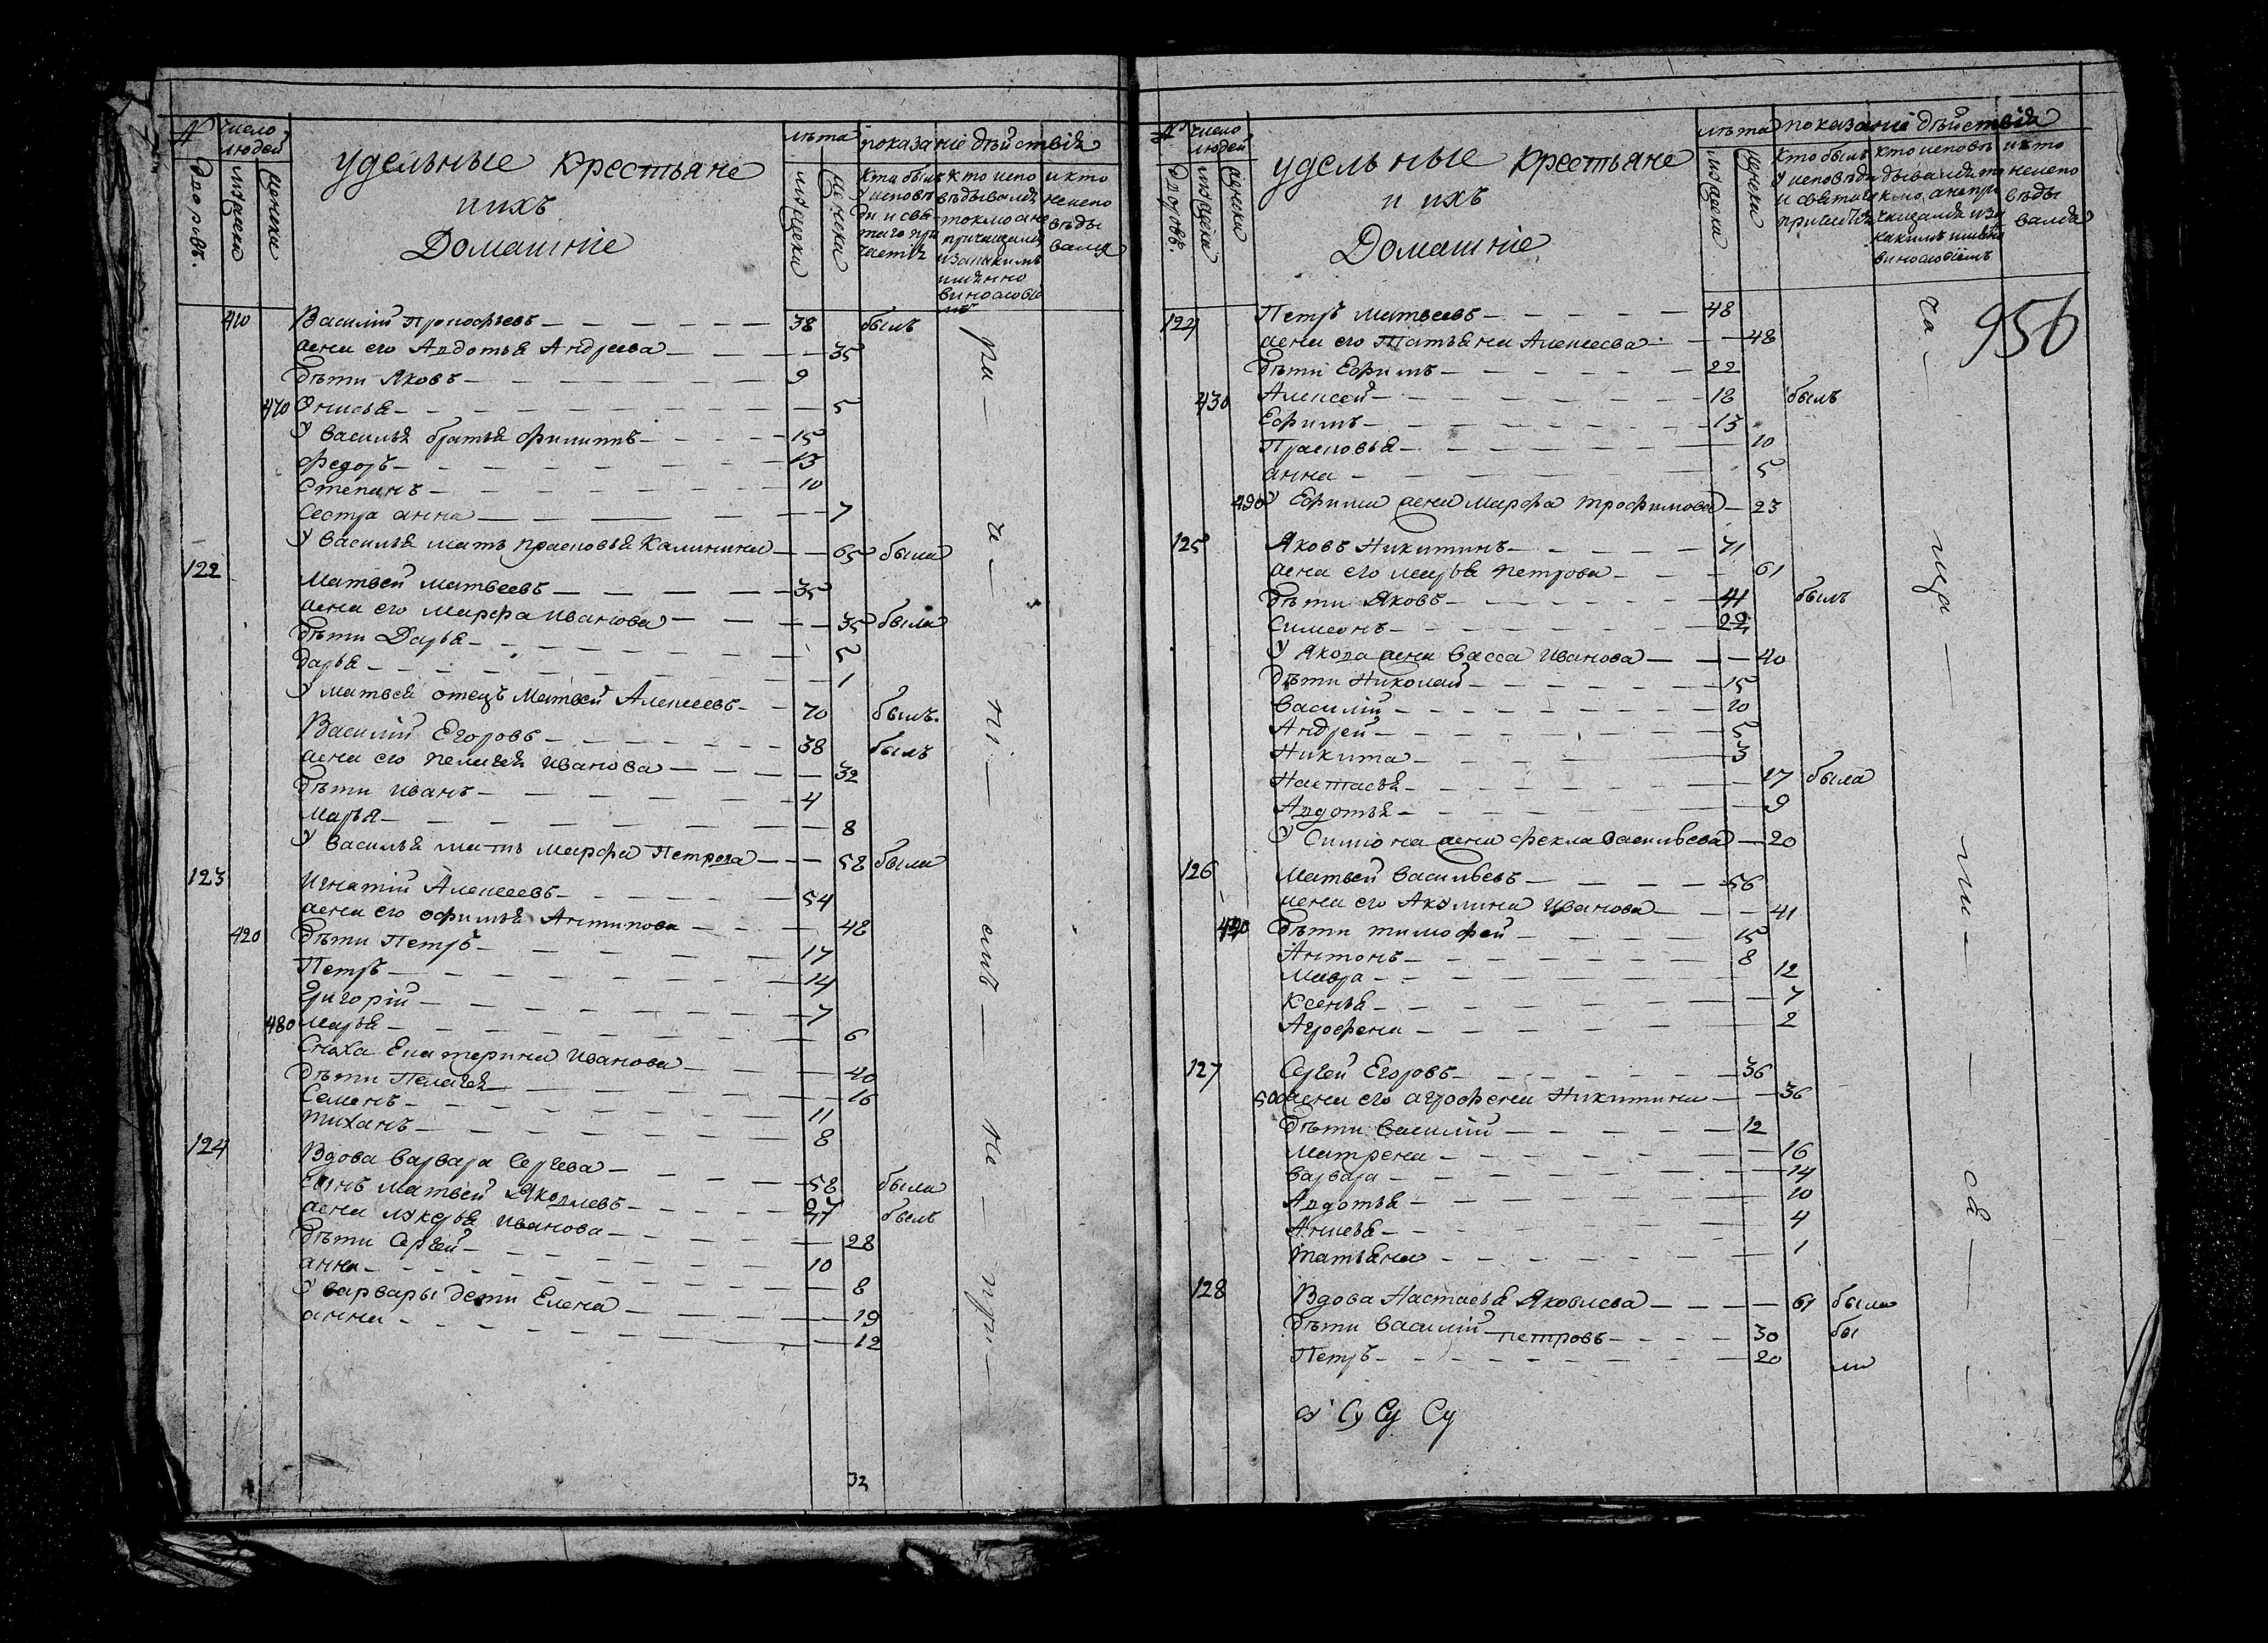 № число людей
удельные крестьяне
ихъ
Домашніе
лѣта
показаніе дѣйствія
дворовъ.
мужеска
женска
мужеска
женска
кто былъ у исповѣди и святаго причастія
кто исповѣдывался токмо а не причащался и за какимъ имянно винословіемъ
и кто неисповѣдывался
410 Василій Прокофьевъ — 38 былъ
жена его Авдотья Андреева — 35
дѣти Яковъ — 9
470 Онисья — 5
У Василья братья Филиппъ — 15
Федоръ — 13
Степанъ — 10
Сестра анна — 7
У Василья мать Прасковья Калинина — 65 была
122 Матвей Матвеевъ — 35
жена его Марфа Иванова — 35 была
дѣти Дарья — 5
дарья — 1
У Матвея отецъ Матвей Алексеевъ — 70 былъ.
Василій Егоровъ — 38 былъ
жена его Пелагея Иванова — 32
дѣти Иванъ — 4
Марья — 8
У Василья мать Марфа Петрова — 58 была
123 Игнатій Алексеевъ — 54
жена его Офимья Антипова — 48
420 дѣти Петръ — 17
Петръ — 14
Григорій — 7
480 Марья — 6
Сноха Екатерина Иванова — 40
дѣти Пелагея — 16
Семенъ — 11
Тиханъ — 8
124 Вдова Варвара Сергева — 58 была
Сынъ Матвей Яковлевъ — 27 былъ
жена Лукерья Иванова — 28
дѣти Сергей — 10
анна — 8
У Варвары дети Елена — 19
анна — 12
32
ра — а — ні — емъ — не — при —
№ число людей
удельные крестьяне
и ихъ
Домашніе
лѣта
показаніе дѣйствія
дворовъ.
мужеска
женска
мужеска
женска
кто былъ у исповѣди и святаго причастія
кто исповѣдывался токмо а не причащался и за какимъ имянно винословіемъ
и кто неисповѣдывался
956
124 Петръ Матвеевъ — 48
жена его Татьяна Алексеева — 48
дѣти Ефимъ — 22
430 Алексей — 18 былъ
Ефимъ — 13
Прасковья — 10
анна — 5
490 У Ефима жена Марфа Трофимова — 23
125 Яковъ Никитинъ — 71
жена его Марья Петрова — 61
дѣти Яковъ — 41 былъ
Симеонъ — 22
У Якова жена Васса Иванова — 40
дѣти Николай — 15
Василій — 10
Андрей — 5
Никита — 3
Настасья — 17 была
Авдотья — 9
У Симіона жена Фекла Васильева — 20
126 Матвей Васильевъ — 56
жена его Акулина Иванова — 41
440 дѣти Тимофей — 15
Антонъ — 8
Мавра — 12
Ксенья — 7
Агрофена — 2
127 Сергей Егоровъ — 36
500 жена его Агрофена Никитина — 36
дѣти Василій — 12
Матрена — 16
Варвара — 14
Авдотья — 10
Анисья — 4
Татьяна — 1
128 Вдова Настасья Яковлева — 61 была
дѣти Василій Петровъ — 30 бы
Петръ — 20 ли
Су Су Су
ча — ща — ли — ся —